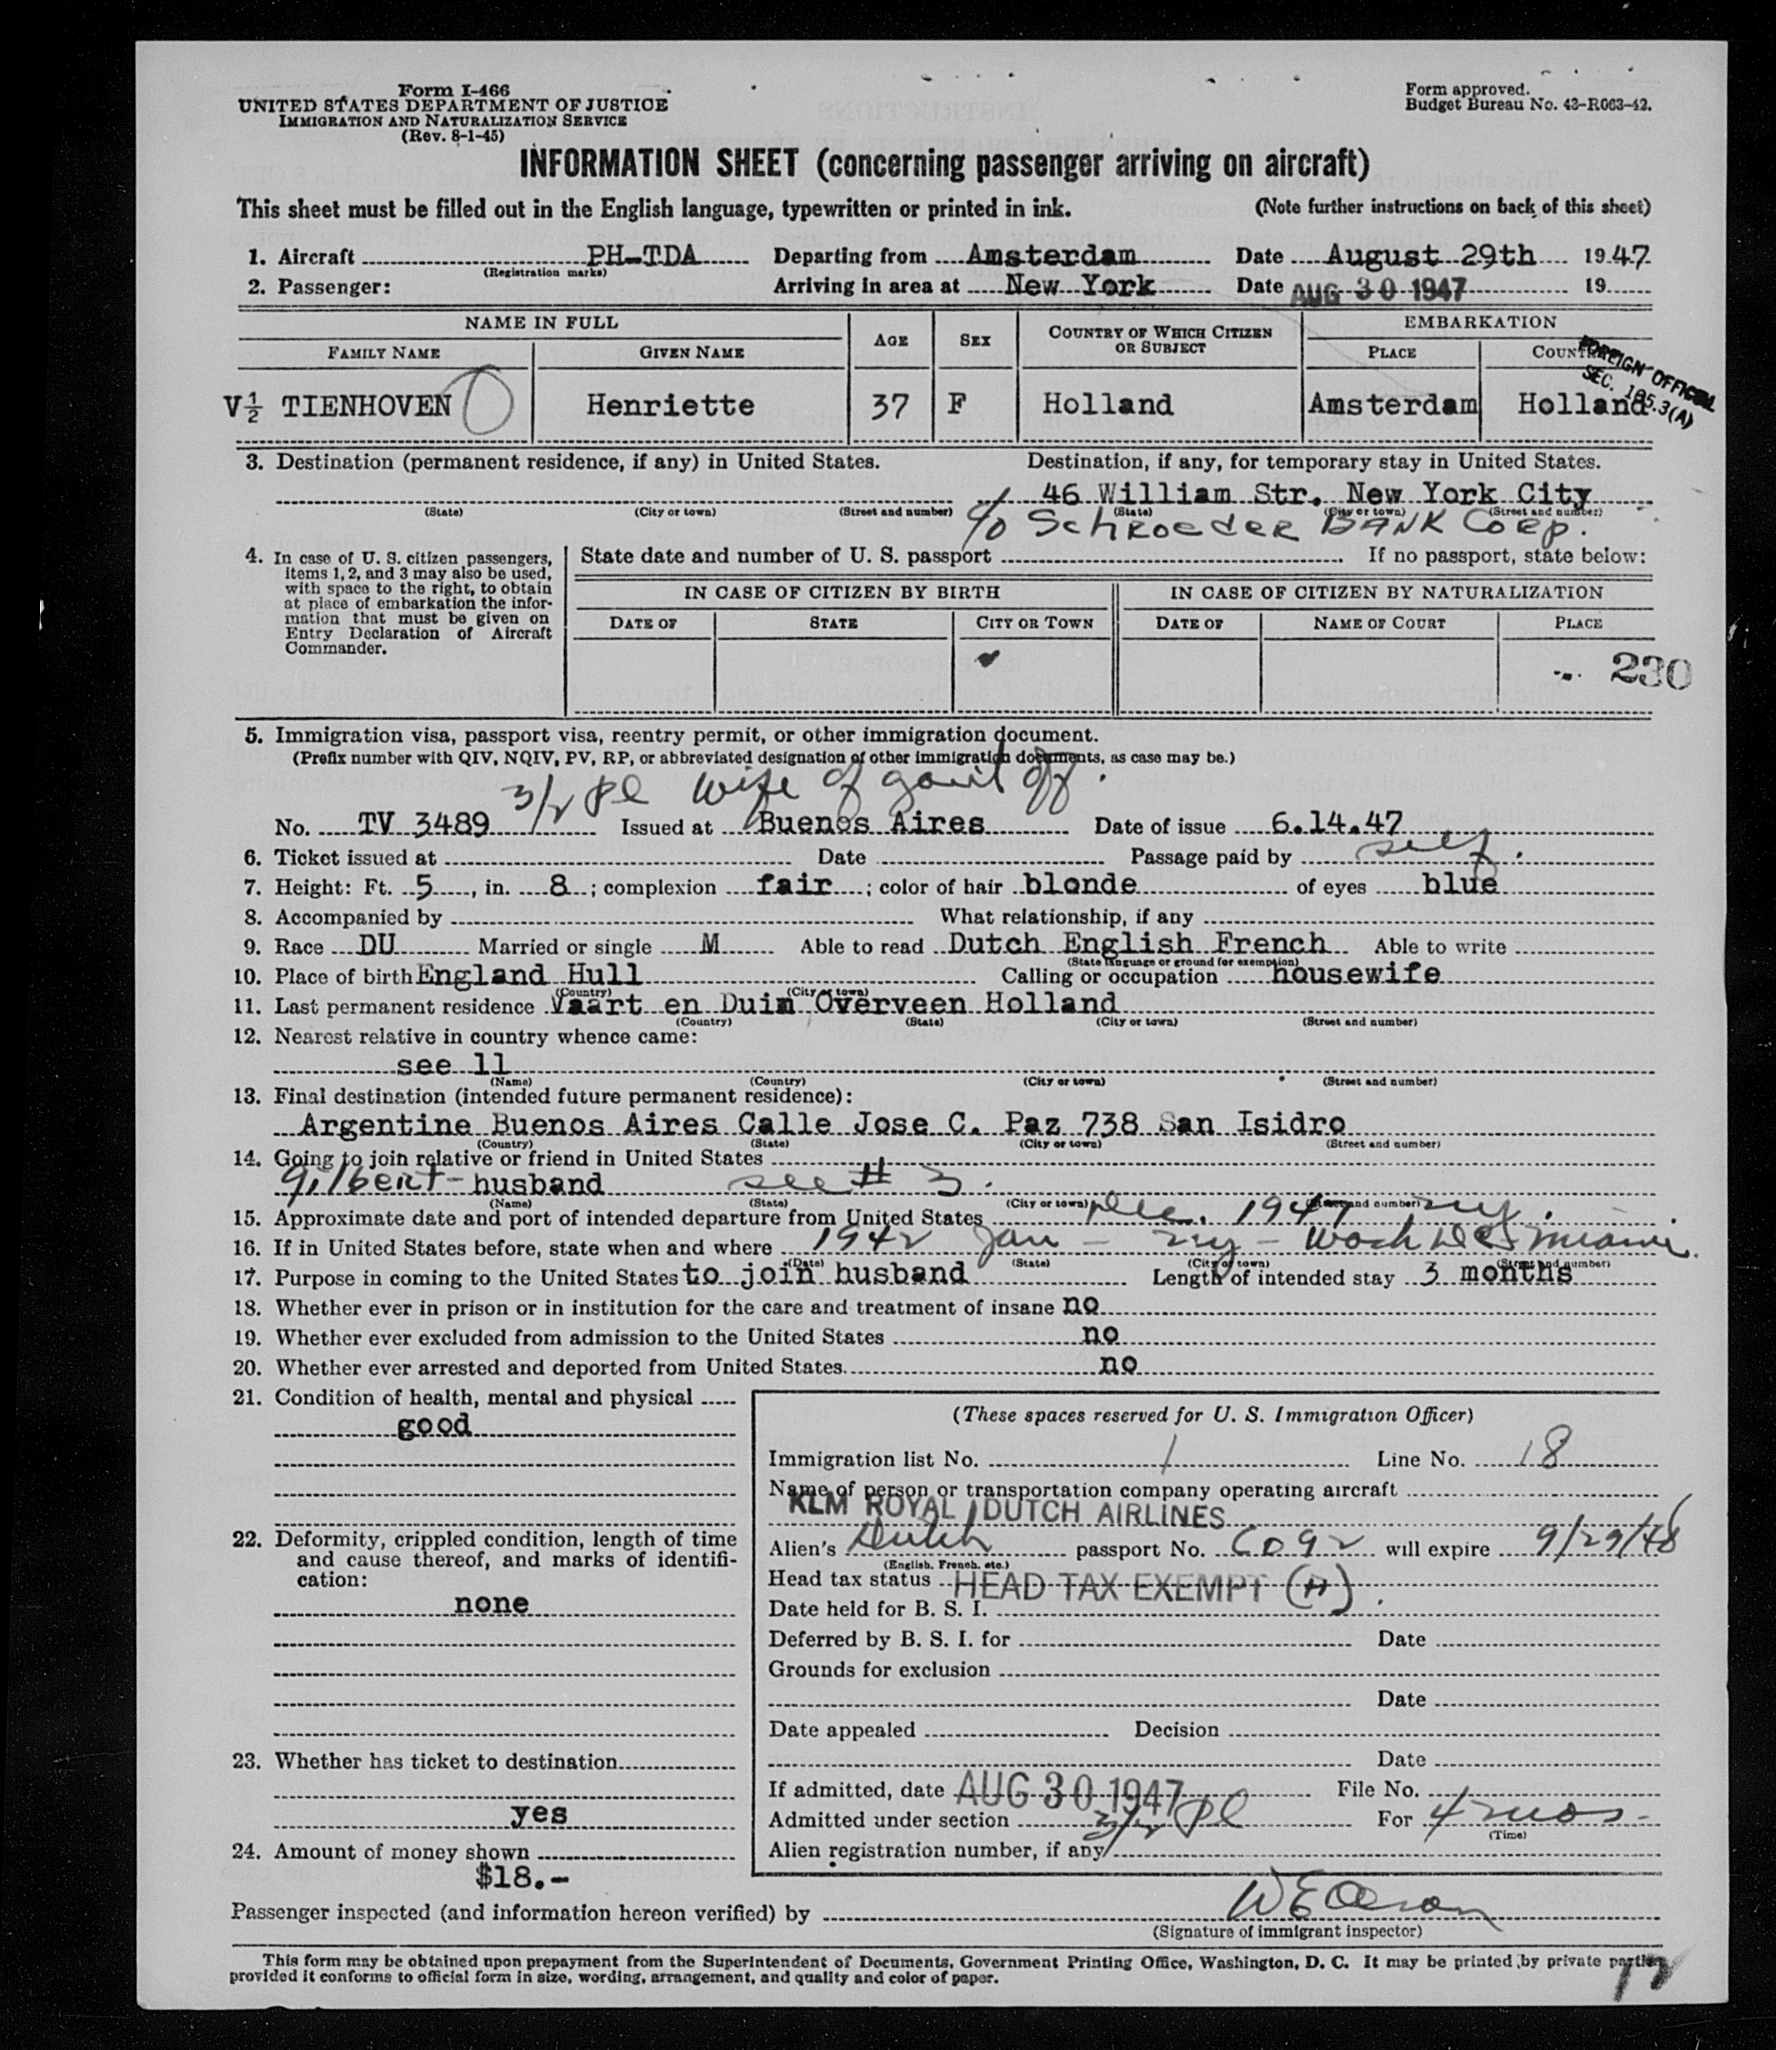 Form I-466
UNITED STATES DEPARTMENT OF JUSTICE
IMMIGRATION AND NATURALIZATION SERVICE
(Rev. 8-1-45)
Form approved.
Budget Bureau No. 43-R063-42.
INFORMATION SHEET (concerning passenger arriving on aircraft)
This sheet must be filled out in the English language, typewritten or printed in ink. (Note further instructions on back of this sheet)
1. Aircraft PH-TDA Departing from Amsterdam Date August 29th 1947
(Registration marks)
2. Passenger: Arriving in area at New York Date AUG 30 1947 19
NAME IN FULL
FAMILY NAME GIVEN NAME AGE SEX COUNTRY OF WHICH CITIZEN OR SUBJECT EMBARKATION PLACE COUNTRY
FOREIGN OFFICIAL
SEC. 195.3(A)
V½ TIENHOVEN Henriette 37 F Holland Amsterdam Holland
3. Destination (permanent residence, if any) in United States. Destination, if any, for temporary stay in United States.
46 William Str. New York City
(State) (City or town) (Street and number) (State) (City or town) (Street and number)
c/o Schroeder BANK Corp.
4. In case of U. S. citizen passengers, items 1, 2, and 3 may also be used, with space to the right, to obtain at place of embarkation the information that must be given on Entry Declaration of Aircraft Commander.
State date and number of U. S. passport If no passport, state below:
IN CASE OF CITIZEN BY BIRTH IN CASE OF CITIZEN BY NATURALIZATION
DATE OF STATE CITY OR TOWN DATE OF NAME OF COURT PLACE
230
5. Immigration visa, passport visa, reentry permit, or other immigration document.
(Prefix number with QIV, NQIV, PV, RP, or abbreviated designation of other immigration documents, as case may be.)
3/2 Pl wife of gov't off.
No. TV 3489 Issued at Buenos Aires Date of issue 6.14.47
6. Ticket issued at Date Passage paid by self.
7. Height: Ft. 5, in. 8; complexion fair; color of hair blonde of eyes blue
8. Accompanied by What relationship, if any
9. Race DU Married or single M Able to read Dutch English French Able to write
(State language or ground for exemption)
10. Place of birth England Hull Calling or occupation housewife
(Country) (City or town)
11. Last permanent residence Vaart en Duin Overveen Holland
(Country) (State) (City or town) (Street and number)
12. Nearest relative in country whence came:
see 11
(Name) (Country) (City or town) (Street and number)
13. Final destination (intended future permanent residence):
Argentine Buenos Aires Calle Jose C. Paz 738 San Isidro
(Country) (State) (City or town) (Street and number)
14. Going to join relative or friend in United States
Gilbert - husband see # 3.
(Name) (State) (City or town) (Street and number)
15. Approximate date and port of intended departure from United States Dec. 1947 NY.
16. If in United States before, state when and where 1942 Jan - NY - Wash DC & Miami.
(Date) (State) (City or town) (Street and number)
17. Purpose in coming to the United States to join husband Length of intended stay 3 months
18. Whether ever in prison or in institution for the care and treatment of insane no
19. Whether ever excluded from admission to the United States no
20. Whether ever arrested and deported from United States no
21. Condition of health, mental and physical
good
22. Deformity, crippled condition, length of time and cause thereof, and marks of identification:
none
23. Whether has ticket to destination
yes
24. Amount of money shown
$18.-
(These spaces reserved for U. S. Immigration Officer)
Immigration list No. 1 Line No. 18
Name of person or transportation company operating aircraft
KLM ROYAL DUTCH AIRLINES
Alien's Dutch passport No. 6092 will expire 9/29/48
(English, French, etc.)
Head tax status HEAD TAX EXEMPT (H)
Date held for B. S. I.
Deferred by B. S. I. for Date
Grounds for exclusion
Date
Date appealed Decision
Date
If admitted, date AUG 30 1947 File No.
Admitted under section 3/2 Pl For 4 mos -
(Time)
Alien registration number, if any
Passenger inspected (and information hereon verified) by
(Signature of immigrant inspector)
This form may be obtained upon prepayment from the Superintendent of Documents, Government Printing Office, Washington, D. C. It may be printed by private parties
provided it conforms to official form in size, wording, arrangement, and quality and color of paper.